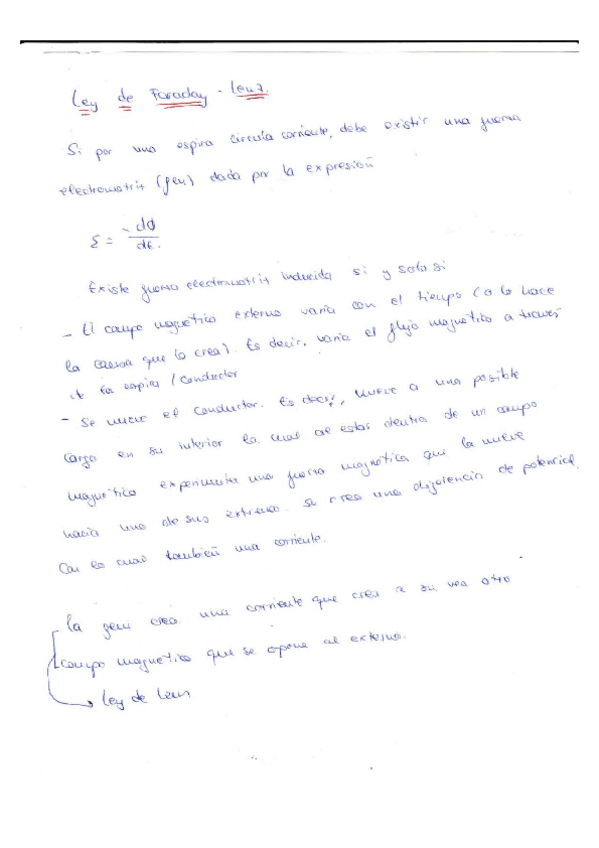 Ley de Faraday - Lenz.
Si por una espira circula corriente, debe existir una fuerza
electromotriz (fem) dada por la expresión
ε = -dΦ/dt.
Existe fuerza electromotriz inducida si y solo si
- El campo magnético externo varía con el tiempo (o lo hace
la causa que lo crea). Es decir, varía el flujo magnético a través
de la espira / conductor
- Se mueve el conductor. Es decir, mueve a una posible
carga en su interior la cual al estar dentro de un campo
magnético experimenta una fuerza magnética que la mueve
hacia uno de sus extremos. Se crea una diferencia de potencial.
Con lo cual también una corriente.
la fem crea una corriente que crea a su vez otro
campo magnético que se opone al externo.
Ley de Lenz